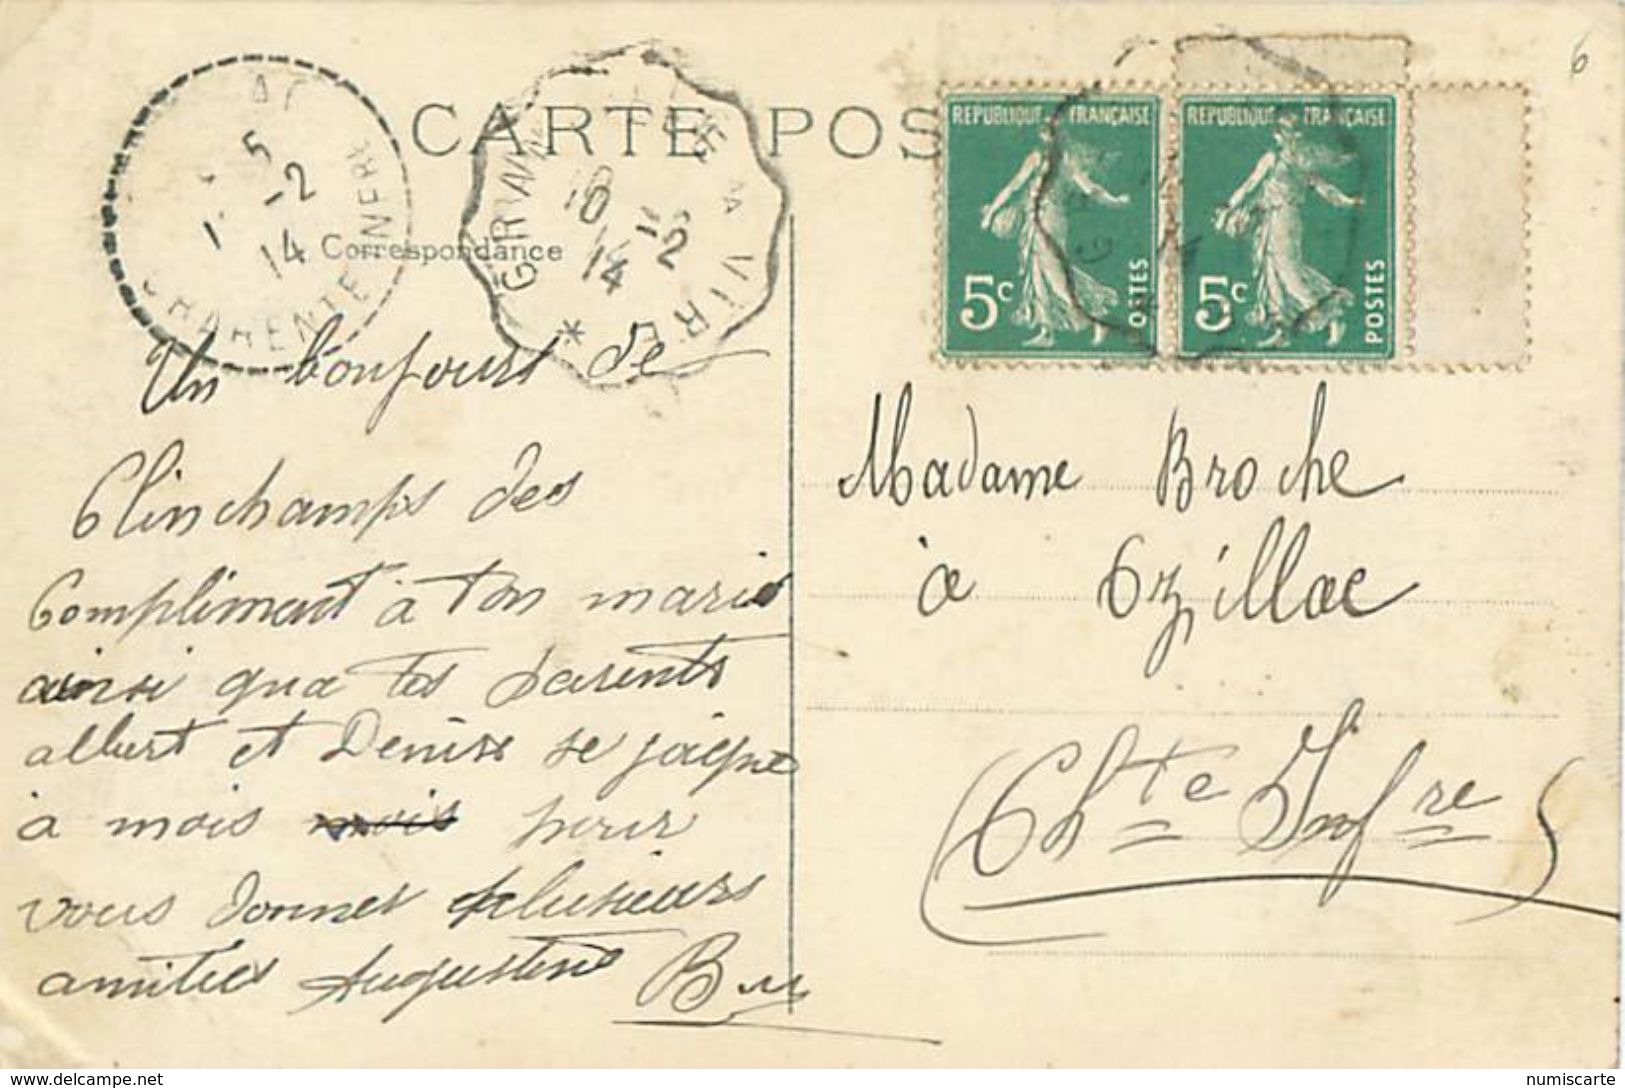 6
CARTE POS
AC
5
1 -2
14
CHARENTE INFRE
GRANVILLE A VITRE
10
11-2
14
*
REPUBLIQUE FRANÇAISE
5c
POSTES
REPUBLIQUE FRANÇAISE
5c
POSTES
Correspondance
Un bonjours de
Clinchamps des
Compliment à ton marie
ainsi qua tes parents
albert et Denise se joigne
à mois mois pour
vous donner plusieurs
amities Augustine B
Madame Broche
à Ozillac
Chte Infre
www.delcampe.net
numiscarte